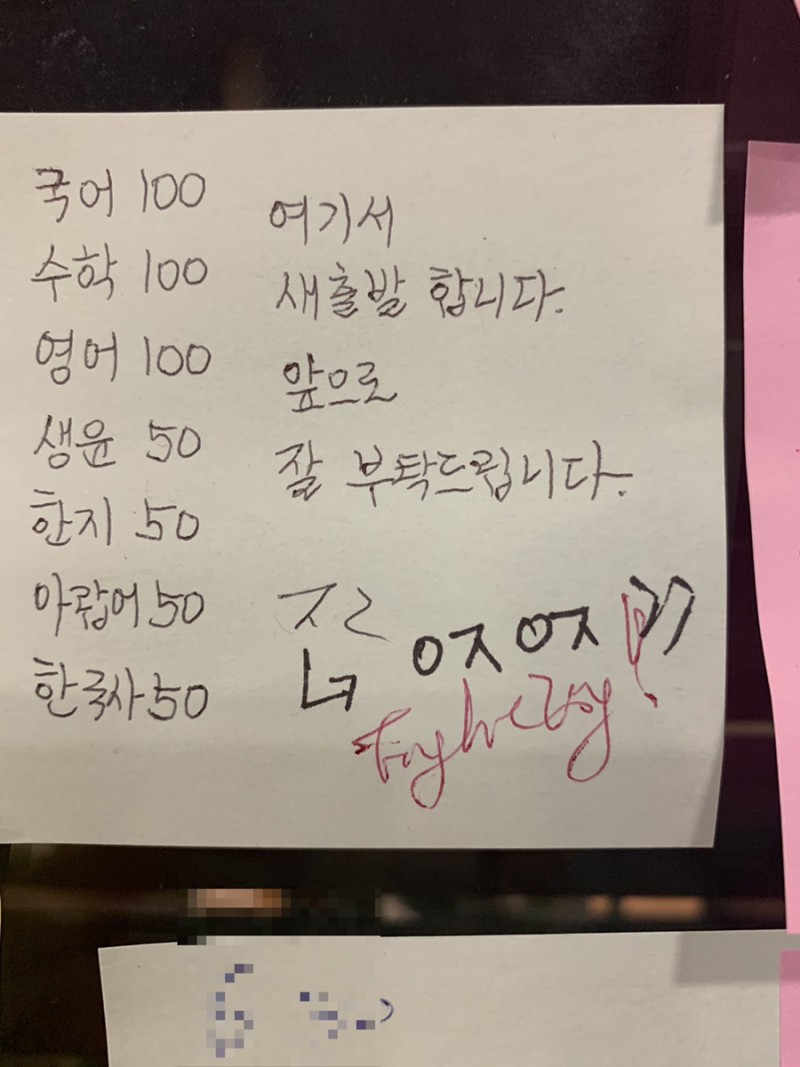 국어 100
수학 100
영어 100
생윤 50
한지 50
아랍어 50
한국사 50
여기서
새출발 합니다.
앞으로
잘 부탁드립니다.